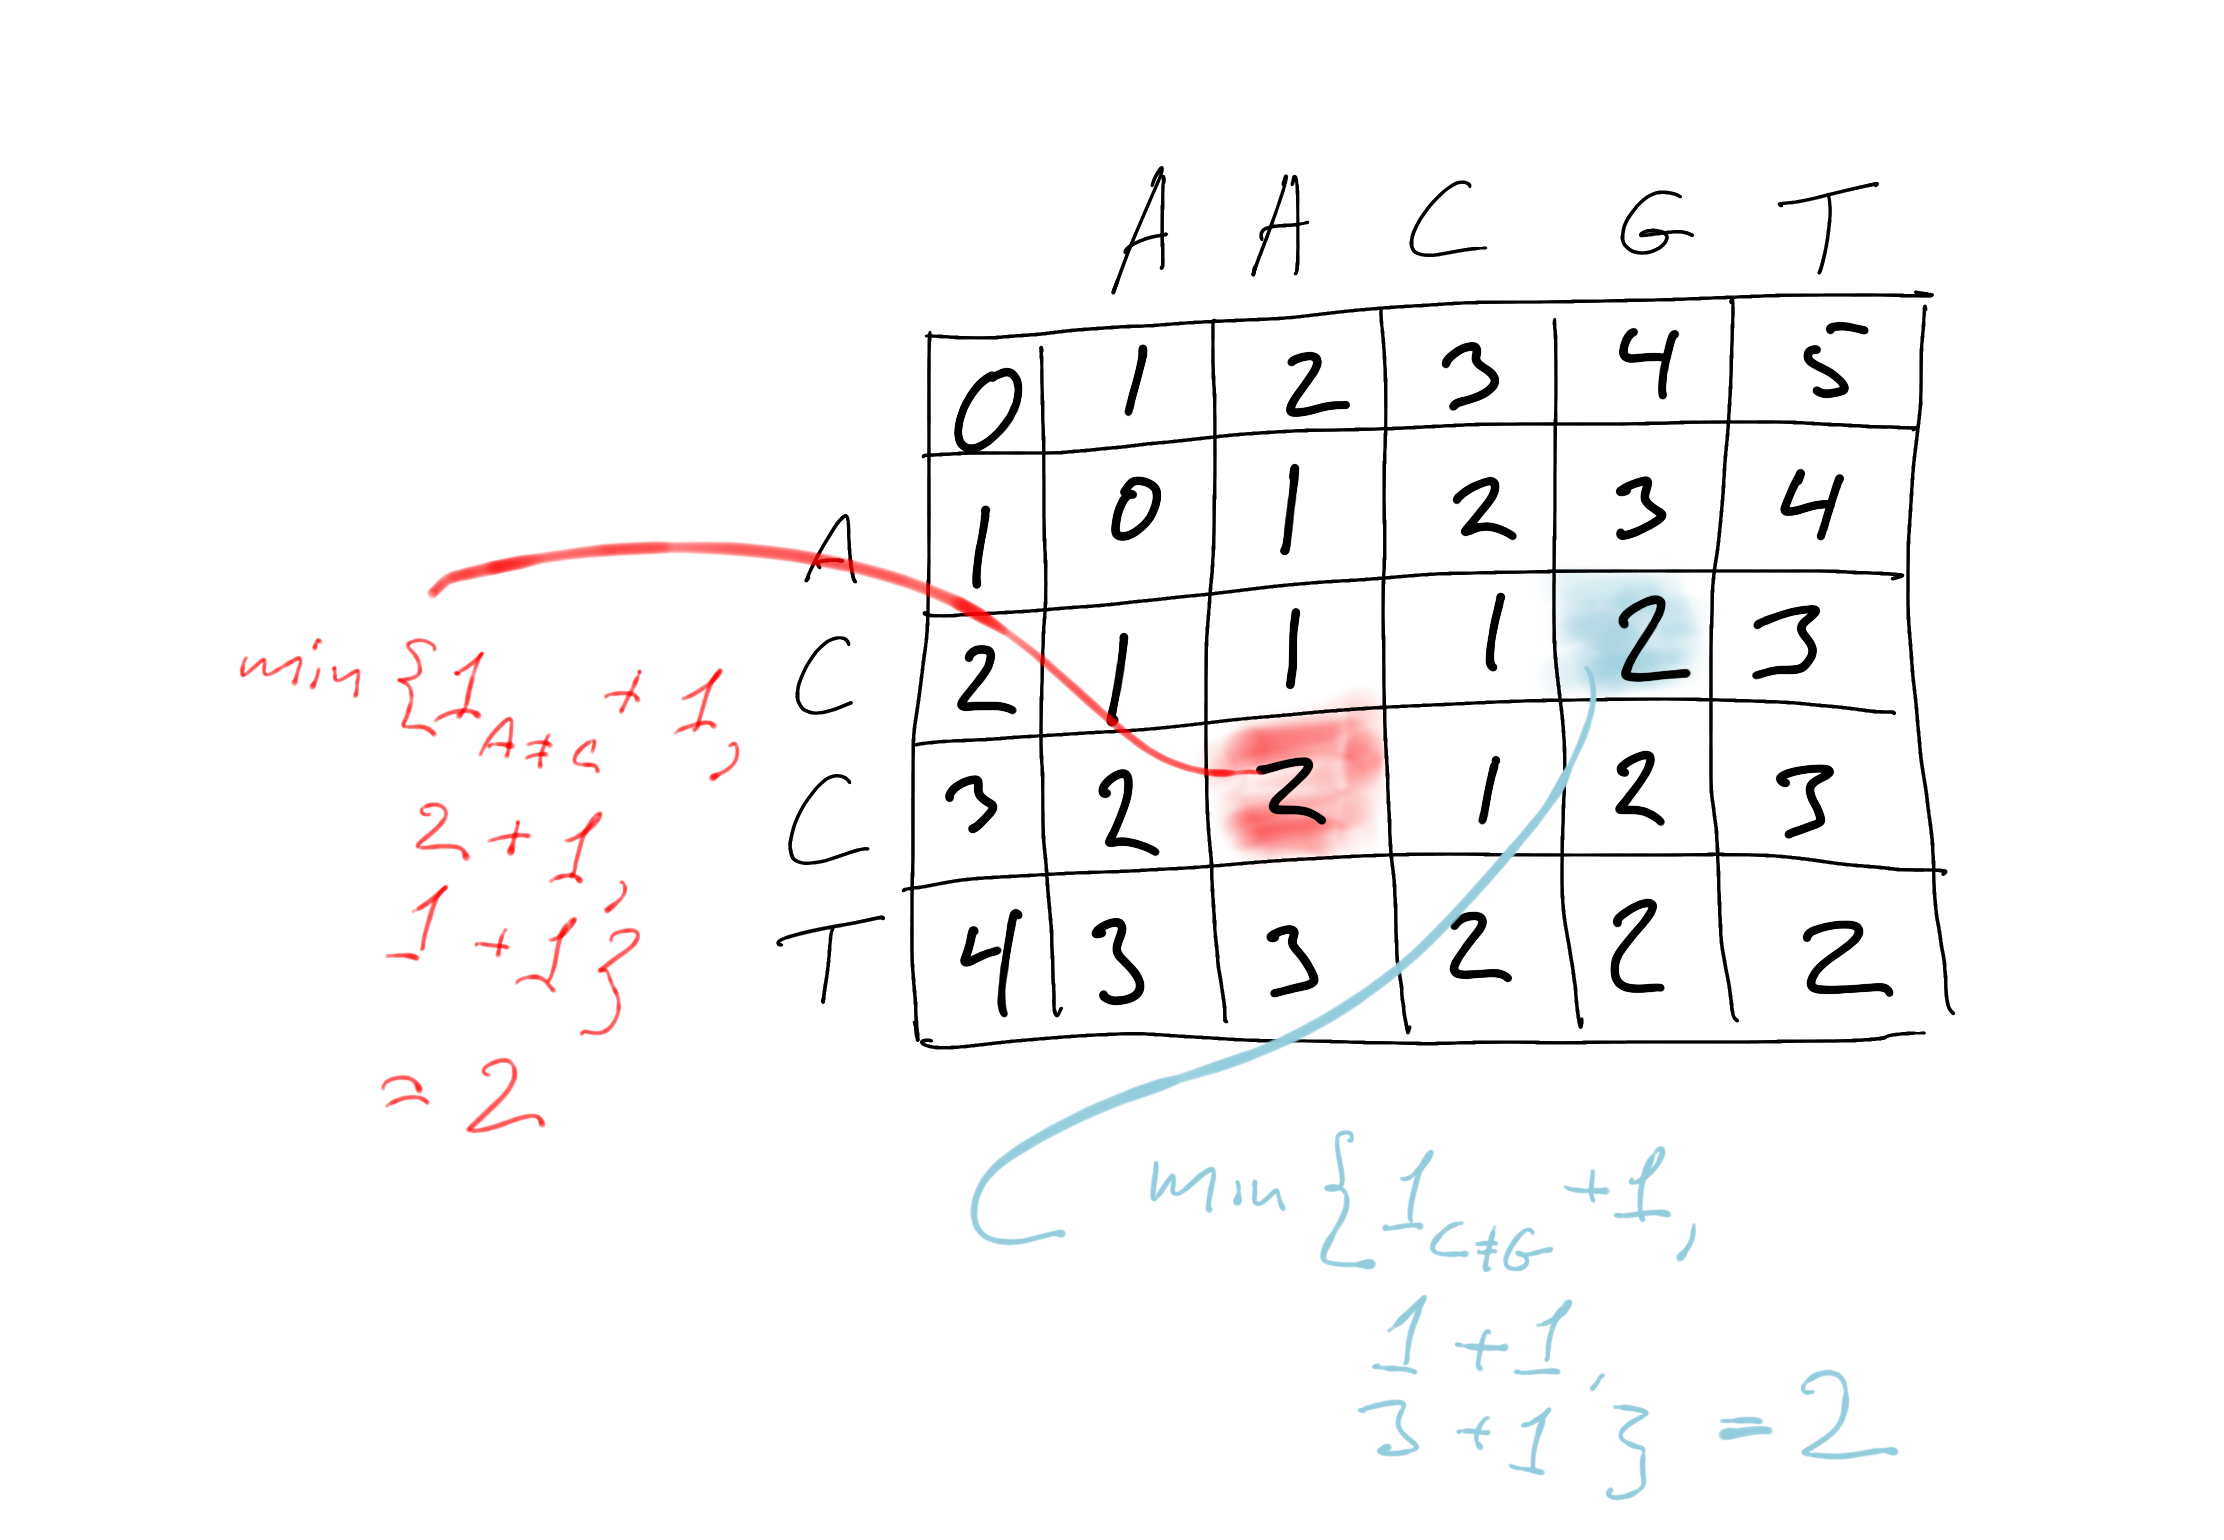 A A C G T
0 1 2 3 4 5
A 1 0 1 2 3 4
C 2 1 1 1 2 3
C 3 2 2 1 2 3
T 4 3 3 2 2 2
min {1 A≠C + 1,
2 + 1,
1 + 1}
= 2
min {1 C≠G + 1,
1 + 1,
3 + 1} = 2